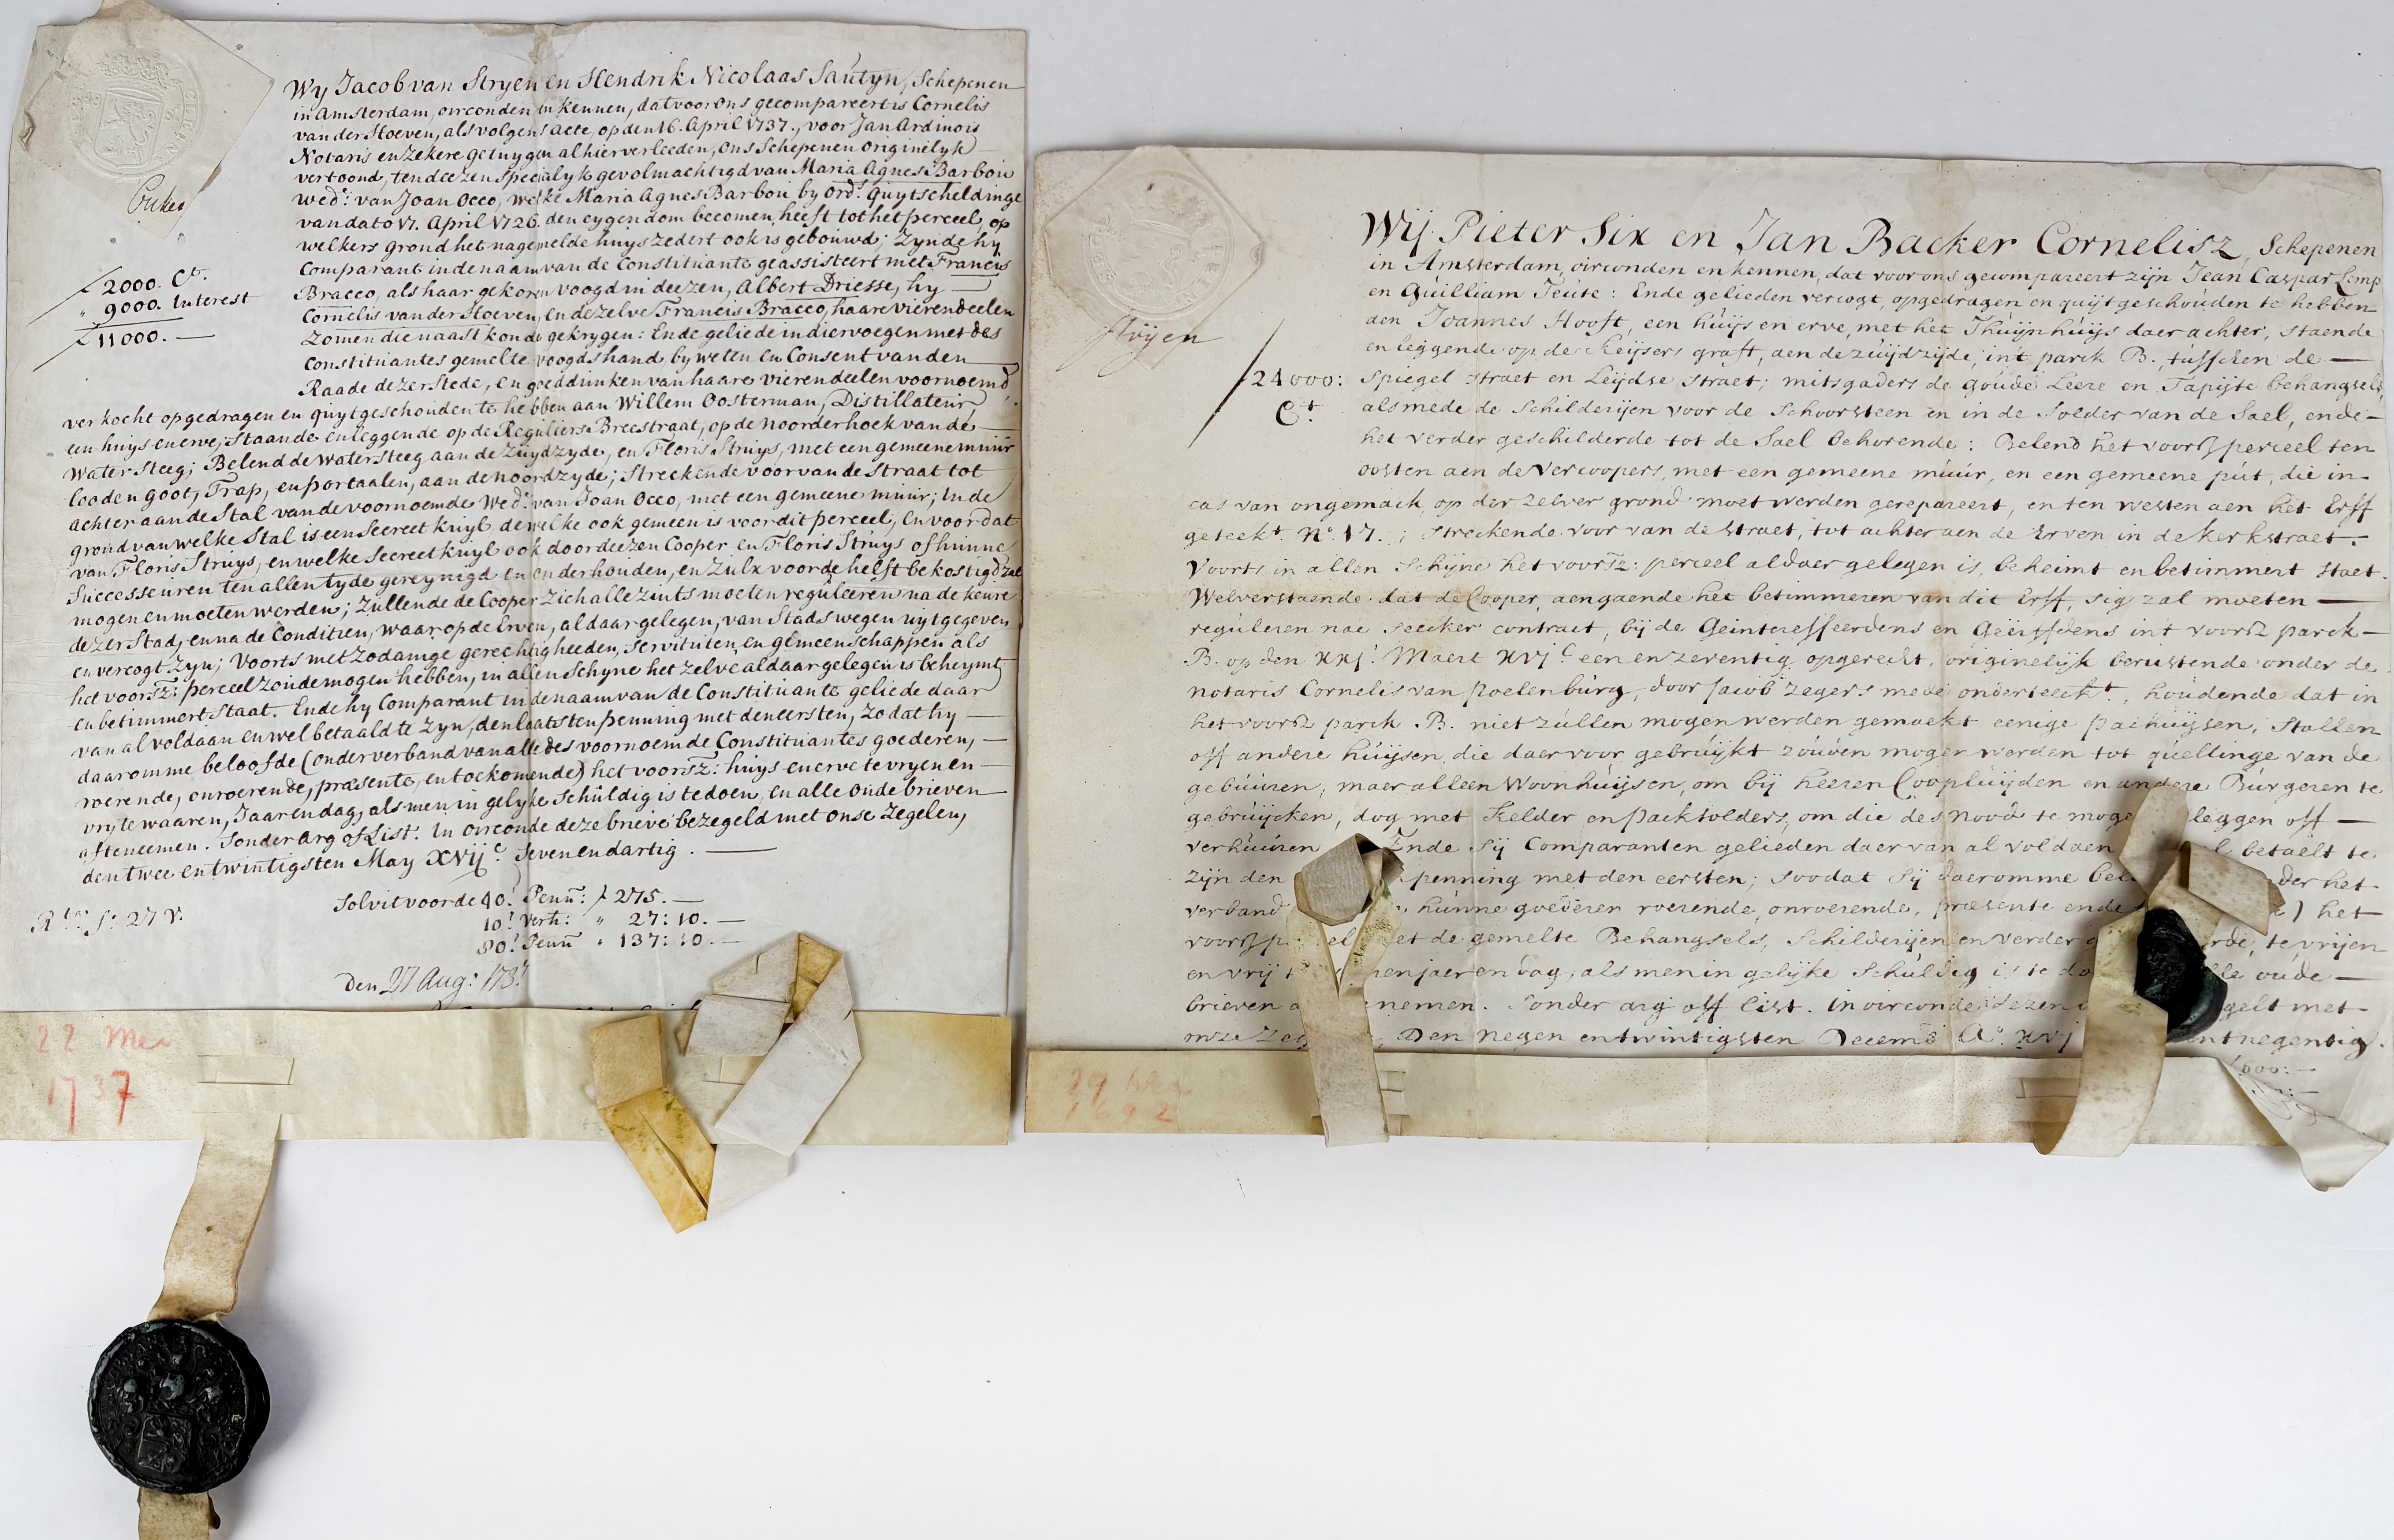 Wy Jacob van Stryen en Hendrik Nicolaas Sautyn, Schepenen
in Amsterdam, oirconden en kennen, dat voor ons gecompareert is Cornelis
van der Hoeven, als volgens acte, op den 16. April 1737., voor Jan Ardinois
Notaris en zekere getuygen alhier verleeden, ons Schepenen originelyk
vertoond, ten deezen specialyk gevolmachtigd van Maria Agnes Barbou
wed:e van Joan Occo, welke Maria Agnes Barbou by ord:e quytscheldinge
van dato 17. April 1726. den eygendom becomen heeft tot het perceel, op
welkers grond het nagemelde huys zedert ook is gebouwd; Zynde hy
Comparant in de naam van de Constituante geassisteert met Francis
Bracco, als haar gekoren voogd in deezen, Albert Driesse, hy
Cornelis van der Hoeven, en dezelve Francis Bracco, haare vierendeelen
Zo men die naast konde gekrygen: Ende geliede in dier voegen met des
Constituantes gemelte voogds hand by weten en Consent van den
Raade dezer Stede, en goeddunken van haare vierendeelen voornoemd
ƒ 2000. C:t
" 9000. Interest
ƒ 11000. —
verkocht opgedragen en quytgeschouden te hebben aan Willem Oosterman, Distillateur,
een huys en erve, Staande en leggende op de Reguliers Breestraat, op de noorderhoek van de
Watersteeg; Belend de Watersteeg aan de Zuydzyde, en Floris Struys, met een gemeene muur
looden goot, Trap, en portaalen, aan de noordzyde; Streckende voor van de straat tot
achter aan de Stal van de voornoemde Wed:e van Joan Occo, met een gemeene muur; In de
grond van welke Stal is een Secreet kuyl dewelke ook gemeen is voor dit perceel, en voor dat
van Floris Struys, en welke Secreet kuyl ook door deezen Cooper en Floris Struys of hunne
Successeuren ten allen tyde gereynigd en onderhouden, en Zulx voor de helft bekostigd zal
mogen en moeten werden; Zullende de Cooper Zich alle zints moeten reguleeren na de keure
dezer Stad, en na de Conditien, waar op de Erven, aldaar gelegen, van Stads wegen uytgegeven
en vercogt zyn; Voorts met zodanige gerechtigheeden, Servituten, en gemeenschappen als
het voorsz: perceel zoude mogen hebben, in allen Schyne het zelve aldaar gelegen is beheymt
en betimmert Staat. Ende hy Comparant in de naam van de Constituante geliede daar
van al voldaan en wel betaald te zyn, den laatsten penning met den eersten, zo dat hy
daaromme beloofde (onder verband van alle des voornoemde Constituantes goederen,
roerende, onroerende, præsente, en toekomende) het voorsz: huys en erve te vryen en
vry te waaren, Jaar en dag, als men in gelyke Schuldig is te doen, en alle oude brieven
af te neemen. Sonder arg of List. In oirconde deze brieve bezegeld met onse Zegelen,
den twee en twintigsten May XVIJ:c Seven en dartig.
Solvit voor de 40:e Penn: ƒ 275.—
10:e verh: " 27:10.—
80:e Penn " 137:10.—
Den 27 Aug: 173
22 Mei
1737
Wij Pieter Six en Jan Backer Cornelisz, Schepenen
in Amsterdam, oirconden en kennen, dat voor ons gecompareert zijn Jean Caspar Comp
en Guilliam Teute: Ende gelieden vercogt, opgedragen en quijtgeschouden te hebben
aen Joannes Hooft, een huijs en erve, met het Thuijnhuijs daer achter, staende
en leggende op de Keijsers graft, aen de zuijdzijde, int parck B., tusschen de
Spiegel straet en Leijdse straet; mitsgaders de goude Leere en Tapijte behangsels,
24000:
C:t
als mede de Schilderijen voor de Schoorsteen en in de Solder van de Sael, ende
het verder geschilderde tot de Sael behorende: Belend het voorsz perceel ten
oosten aen de vercoopers, met een gemeene muur, en een gemeene put, die in
cas van ongemack op der zelver grond moet werden gerepareert, en ten westen aen het Erff
geteek:t N:o 17.; Streckende voor van de straet, tot achter aen de Erven in de kerkstraet.
Voorts in allen Schijne het voorsz: perceel aldaer gelegen is, beheimt en betimmert staet.
Welverstaende dat de Cooper, aengaende het betimmeren van dit Erff, sig zal moeten
reguleren nae seecker contract, bij de Geinteresseerdens en Geërffdens int voorsz parck
B. op den XXJ:e Maert XVJ:C een en zeventig opgerecht, originelijk berustende onder de
notaris Cornelis van Poelenburg, door Jacob Zegers mede onderteekt, houdende dat in
het voorsz parck B. niet zullen mogen werden gemaekt eenige packuijsen, Stallen
off andere huijsen, die daer voor gebruijkt zouden mogen werden tot quellinge van de
gebuuren, maer alleen Woonhuijsen, om bij heeren Coopluijden en andere Burgeren te
gebruijcken, dog met Kelder en packsolders, om die des nood te moge leggen off
verhuuren Ende Sij Comparanten gelieden daer van al voldaen betaelt te
zijn den penning met den eersten; soodat sij daeromme der het
verband hunne goederen roerende, onroerende, præsente ende ) het
voorsz met de gemelte Behangsels, Schilderijen en verder te vrijen
en vrij jaer en dag, als men in gelijke Schuldig is te oude
brieven nemen. Sonder arg off list. In oirconde dezen met
onze Den negen en twintigsten Decemb A:o XVJ negentig.
29
1692